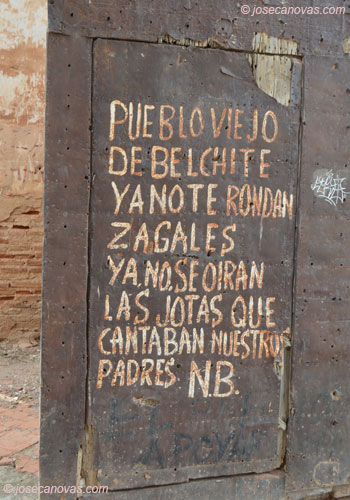 © josecanovas.com
PUEBLO VIEJO
DE BELCHITE
YA NO TE RONDAN
ZAGALES
YA.NO.SE OIRAN
LAS JOTAS QUE
CANTABAN NUESTROS
PADRES. N.B.
© josecanovas.com